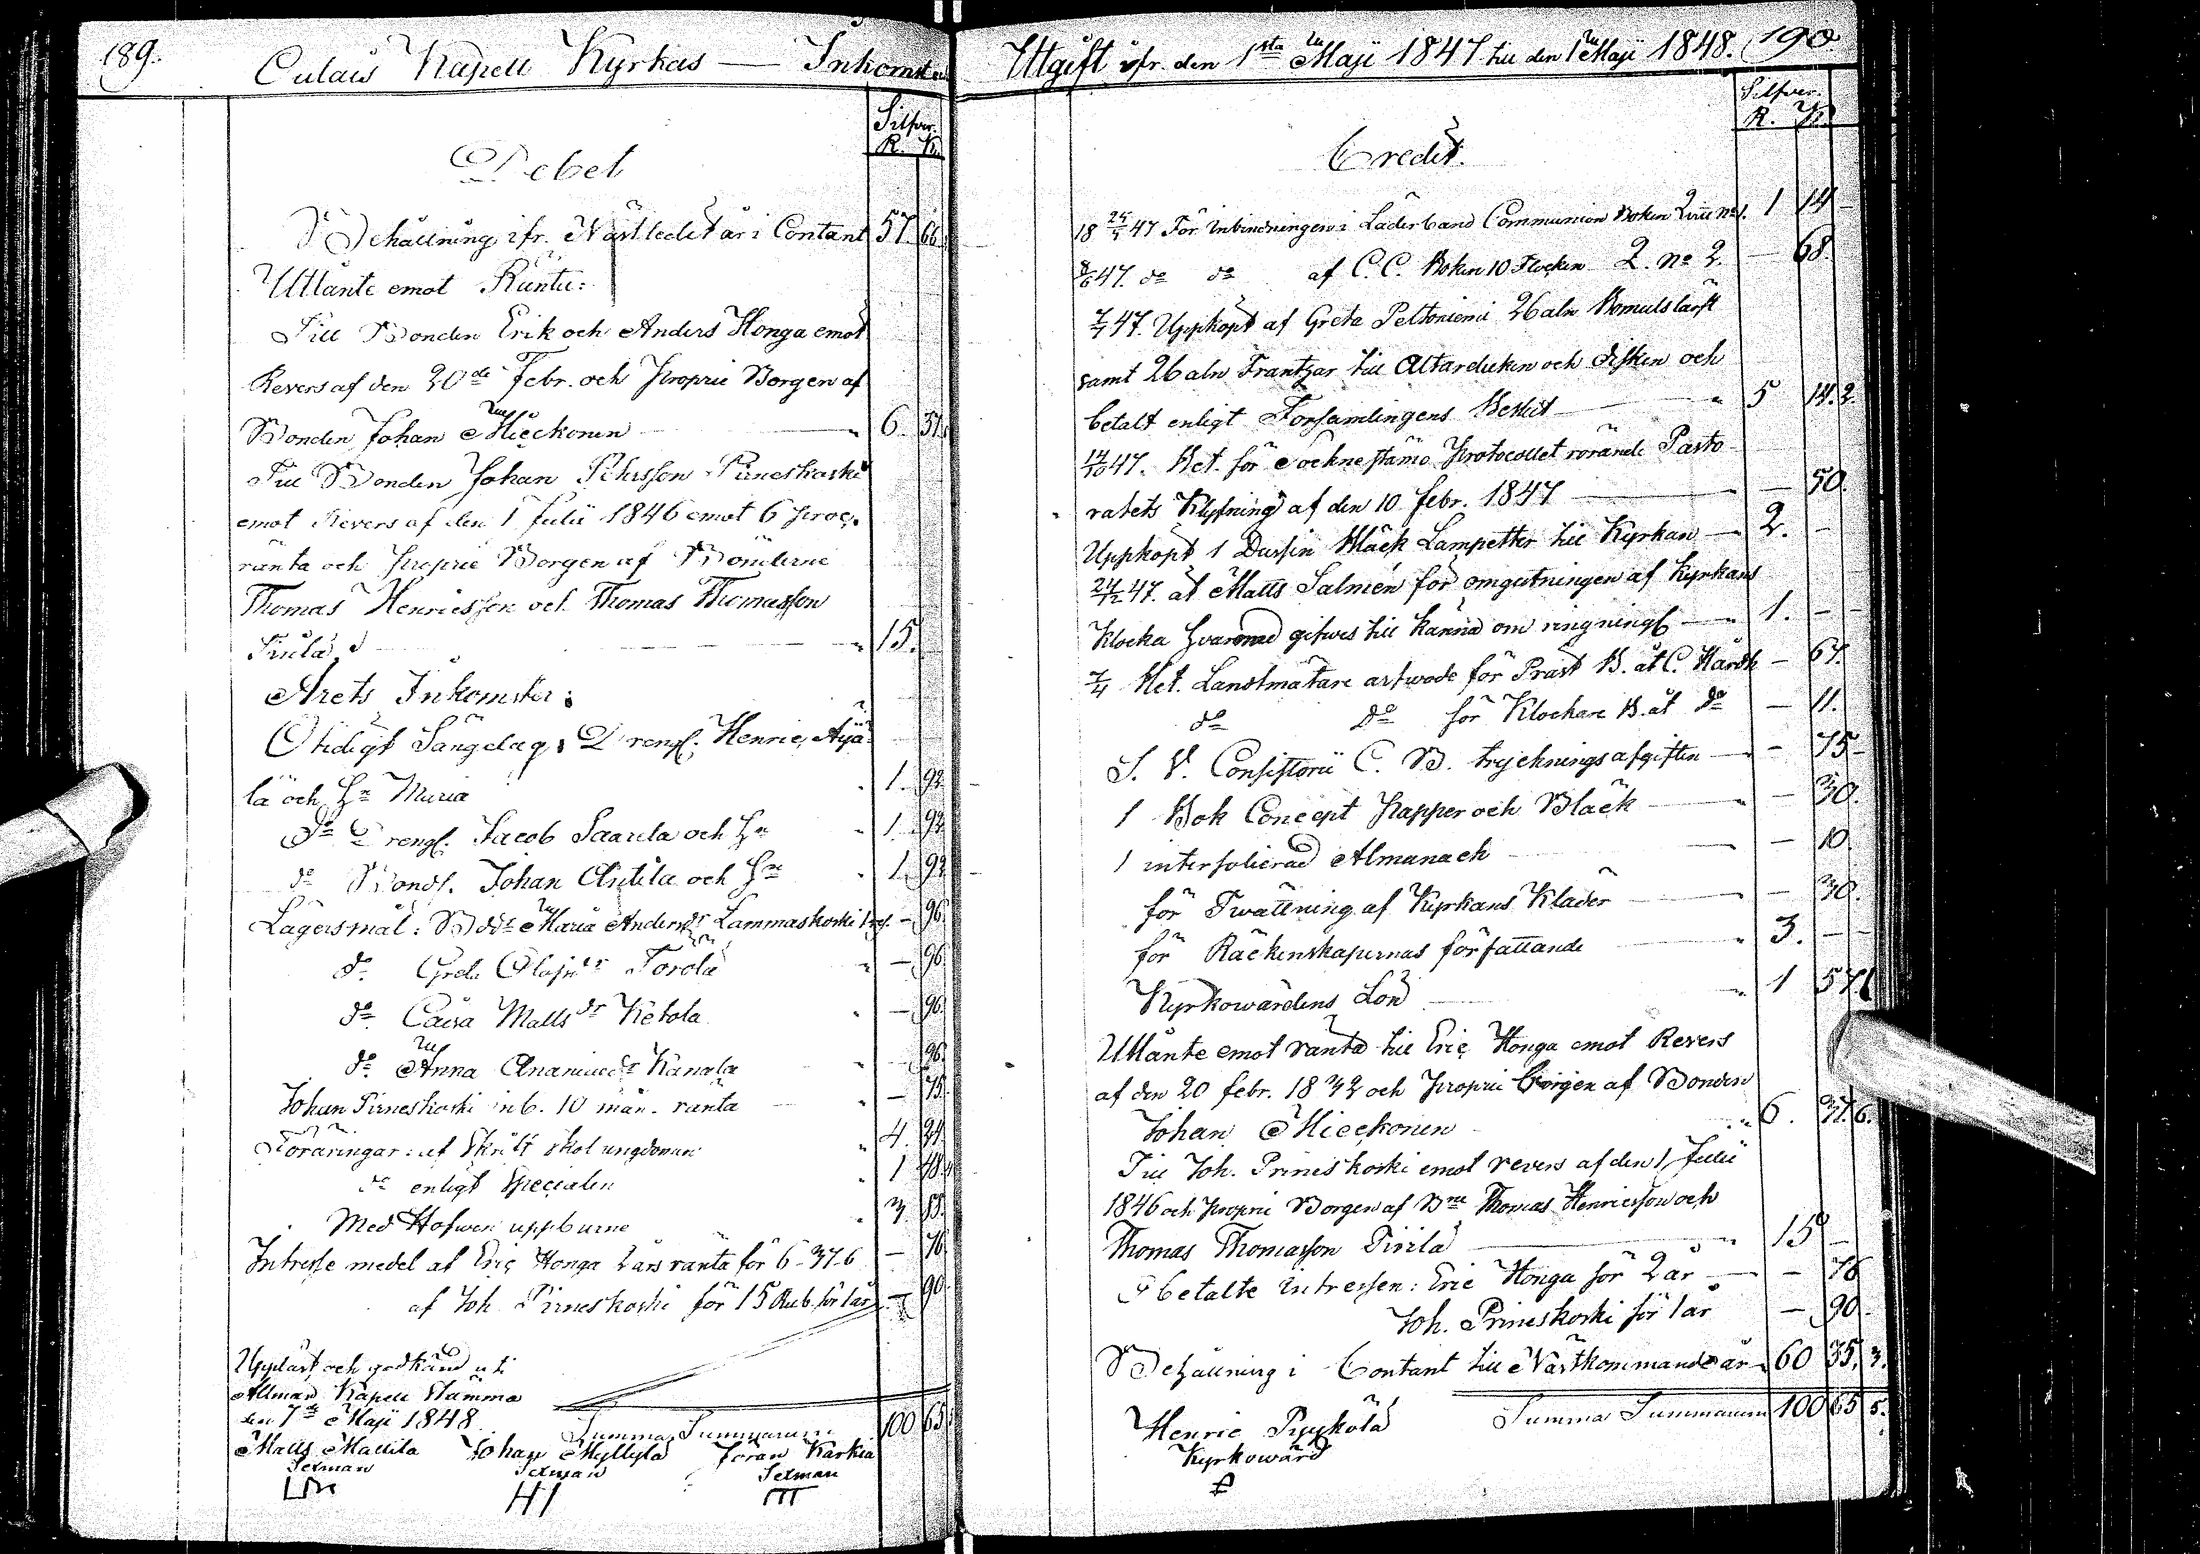 189.
Culais Kapell Kyrkas — Inkomst
Silfver.
R. K.
Debet
Behållning ifr. Nästledit år i Contant 57. 66.
Utlånte emot Räntu:
Till Bonden Erik och Anders Honga emot
Revers af den 20de Febr. och Proprie Borgen af
Bonden Johan Mieckonen — " 6. 37.
Till Bonden Johan Pehrsson Pirneskoski
emot Revers af den 1 Julii 1846 emot 6 proc.
ränta och Proprie Borgen af Bönderne
Thomas Henricsson och Thomas Thomasson
— " 15.
Årets Inkomster:
Otidigt Sängelag: Drengs. Henric Äijä-
lä och Hu Maria " 1. 92.
do Drengs. Jacob Saarela och Hu " 1. 92.
do Bonds. Johan Anttila och Hu " 1. 92.
Lägersmål: Bddr Maria Andersdr Lammaskoski 1 res. — 96.
do. Greta Olofsdr Torola " — 96.
do. Caisa Mattsdr Ketola " — 96.
do. Anna Kangla " — 96.
Johan Pirneskoski inb. 10 mån. ränta — " — 75.
Föräringar: af Skrift skol ungdomen " 4. 24.
do enligt Specialen " 1 48.
Med Hofwen uppburne " 3. 88.
Intresse medel af Eric Honga 2 års ränta för 6-37-6 — 76.
af Joh. Pirneskoski för 15 Rub. för 1 år — 90.
Uppläst och godkänd uti
Allmän Kapell Stämma
den 7de Maji 1848.
Summa Summarum 100 65.
Matts Mattila Johan Myllylä Jöran Karkia
Sexman Sexman Sexman
HI
Utgift ifr. den 1sta Maji 1847 till den 1 Maji 1848. 190
Silfver.
R. K.
Credit.
18 24/5 47 För inbindningen i Läderband Communion Boken Litt. No 1. 1 14 -
8/6 47. do do af C.C. Boken 10 Flocken L. No 2. — 68.
7/7 47. Uppkopt af Greta Peltoniemi 26 aln Bomulslärft
samt 26 aln Frantzar till Altarduken och Disken och
betalt enligt Församlingens Beslut — " 5 14. 2.
14/10 47. Bet. för Sockne stämo Protocollet rörande Pasto-
ratets Klyfning af den 10 febr. 1847 — — 50.
Uppkopt 1 Dussin Bläck Lampetter till Kyrkan — 2. -
24/12 47. åt Matts Salmén för omgutningen af Kyrkans
Klocka hvarmed gifwes till känna om ringnings — " 1. - -
7/4 Bet. Landtmätare arfwode för Präst B. åt C. Hårdh — 67.
do do för Klockare B. åt do — 11.
S. V. Consistorii C. B. tryckningsafgiften — — 75 -
1 Bok Concept Papper och Bläck — " — 30.
1 interfolierad Almanach — — 10.
för Twättning af Kyrkans Kläder — — 30.
för Räckenskapernas författande — " 3. — -
Kyrkowärdens Lön — " 1 57.
Utlånte emot ränta till Eric Honga emot Revers
af den 20 febr. 1832 och Proprie Borgen af Bonden
Johan Mieckonen " 6. 37. 6.
Till Joh. Prineskoski emot revers af den 1 Julii
1846 och Proprie Borgen af Bne Thomas Henricsson och
Thomas Thomasson Pirilä — " 15 -
Obetalte intressen: Eric Honga för 2 år — — 76
Joh. Prineskoski för 1 år — 90 -
Behållning i Contant till Nästkommande år 60 35. 3.
Summa Summarum 100 65 5.
Henric Pyykölä
Kyrkowärd